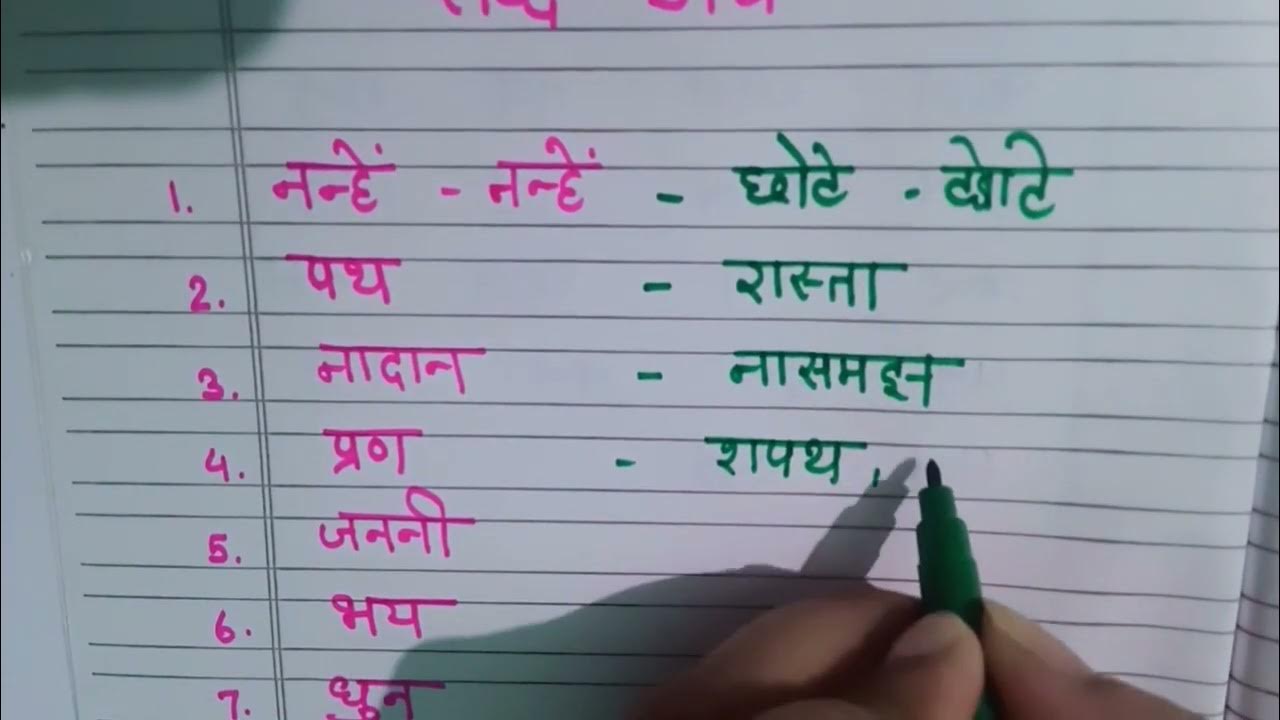 शब्द अर्थ
1. नन्हें - नन्हें - छोटे - छोटे
2. पथ - रास्ता
3. नादान - नासमझ
4. प्रण - शपथ,
5. जननी
6. भय
7. धुन